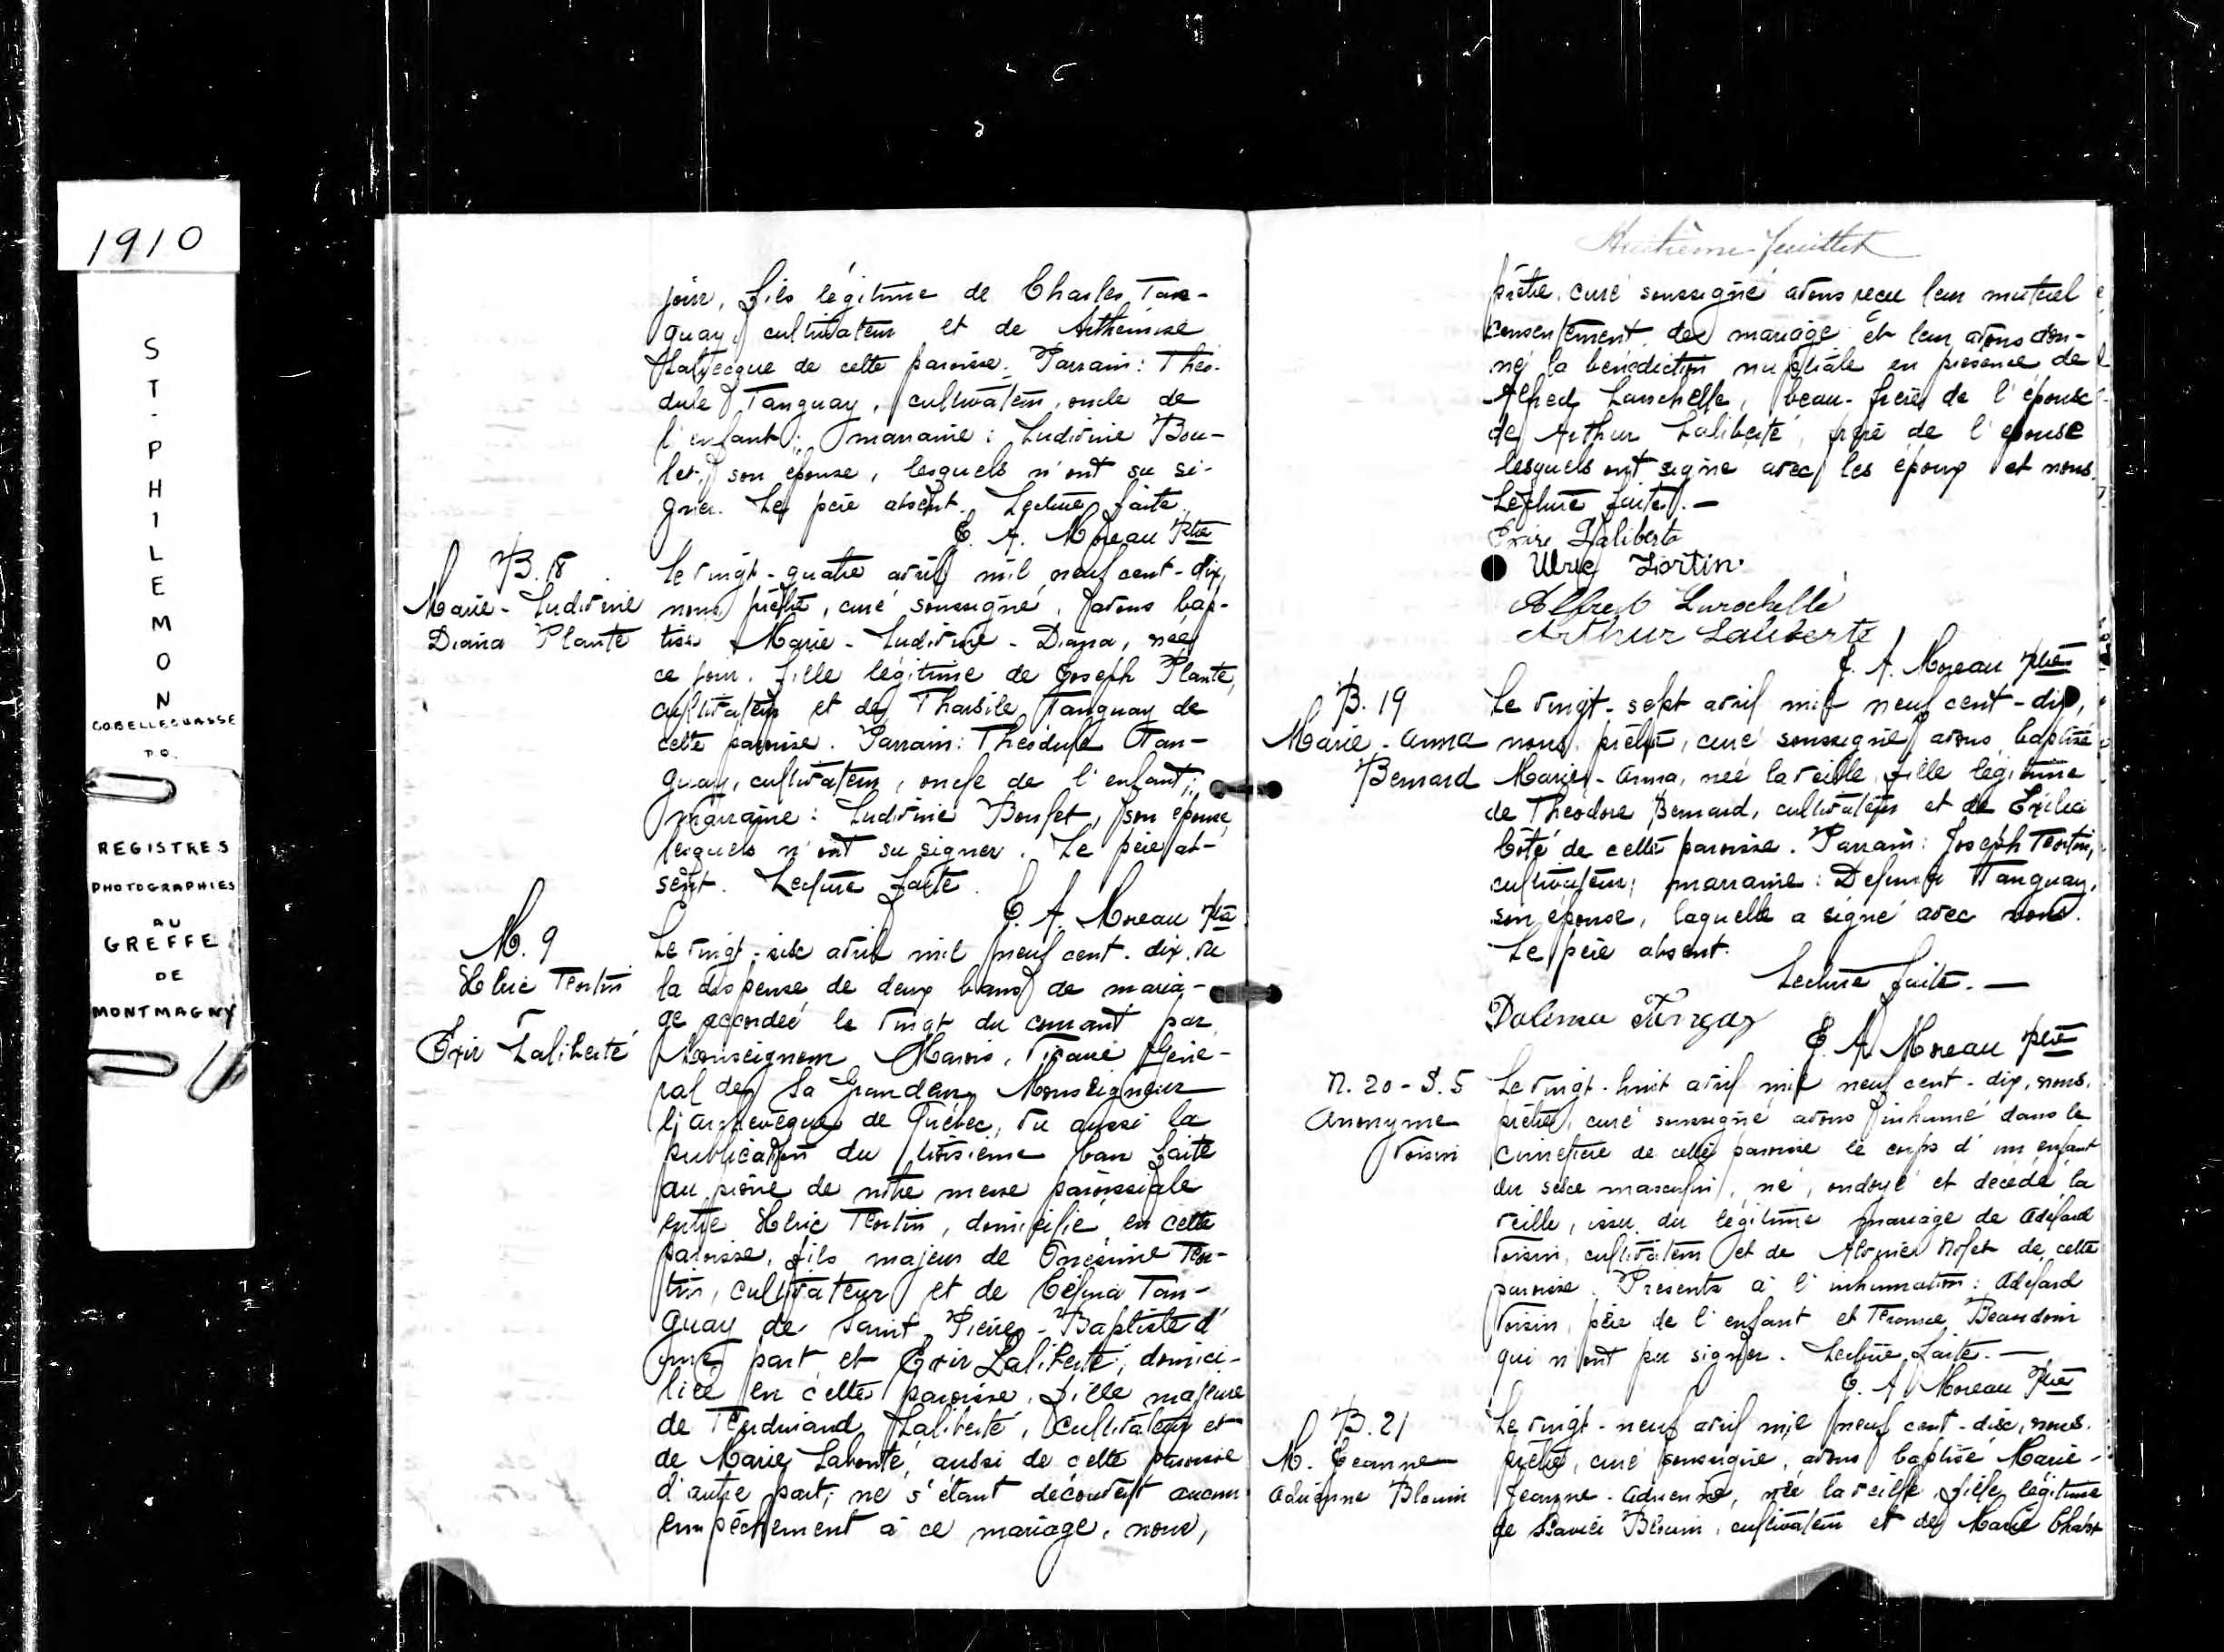 1910
ST-PHILEMON
CO BELLECHASSE
P.Q.
REGISTRES
PHOTOGRAPHIES
AU
GREFFE
DE
MONTMAGNY
jour, fils légitime de Charles Tan-
guay, cultivateur et de Arthémise
Labrecque de cette paroisse. Parrain: Théo-
dule Tanguay, cultivateur, oncle de
l'enfant; marraine: Ludivine Bou-
let, son épouse, lesquels n'ont su si-
gner. Le père absent. Lecture faite.
E. A. Moreau Ptre
B. 18
Marie-Ludivine
Diana Plante
Le vingt-quatre avril mil neuf cent-dix,
nous prêtre, curé soussigné, avons bap-
tisé Marie-Ludivine-Diana, née
ce jour, fille légitime de Joseph Plante,
cultivateur et de Tharsile Tanguay de
cette paroisse. Parrain: Théodule Tan-
guay, cultivateur, oncle de l'enfant;
marraine: Ludivine Boulet, son épouse,
lesquels n'ont su signer. Le père ab-
sent. Lecture faite.
E. A. Moreau Ptre
M. 9
Ulric Fortin
Exir Laliberté
Le vingt-six avril mil neuf cent-dix, vu
la dispense de deux bans de maria-
ge accordée le vingt du courant par
Monseigneur Marois, Vicaire Géné-
ral de Sa Grandeur Monseigneur
l'archevêque de Québec, vu aussi la
publication du troisième ban faite
au prône de notre messe paroissiale
entre Ulric Fortin, domicilié en cette
paroisse, fils majeur de Onésime For-
tin, cultivateur et de Célina Tan-
guay de Saint Pierre-Baptiste d'
une part et Exir Laliberté, domici-
liée en cette paroisse, fille majeure
de Ferdinand Laliberté, cultivateur et
de Marie Labonté, aussi de cette paroisse
d'autre part; ne s'étant découvert aucun
empêchement à ce mariage, nous,
Huitième feuillet
prêtre, curé soussigné avons reçu leur mutuel
consentement de mariage et leur avons don-
né la bénédiction nuptiale en présence de
Alfred Larochelle, beau-frère de l'épouse
de Arthur Laliberté, frère de l'épouse
lesquels ont signé avec les époux et nous.
Lecture faite.—
Exire Laliberté
Ulric Fortin.
Alfred Larochelle
Arthur Laliberté
E. A. Moreau, ptre
B. 19
Marie-Anna
Bernard
Le vingt-sept avril mil neuf cent-dix,
nous, prêtre, curé soussigné avons baptisé
Marie-Anna, née la veille, fille légitime
de Théodore Bernard, cultivateur et de Exilia
Côté de cette paroisse. Parrain: Joseph Fortin,
cultivateur; marraine: Delima Tanguay,
son épouse, laquelle a signé avec nous.
Le père absent.
Lecture faite.—
Dalima Tangay
E. A. Moreau ptre
N. 20-S. 5
Anonyme
Voisin
Le vingt-huit avril mil neuf cent-dix, nous,
prêtre, curé soussigné avons inhumé dans le
cimetière de cette paroisse le corps d'un enfant
du sexe masculin, né, ondoyé et décédé la
veille, issu du légitime mariage de Adélard
Voisin, cultivateur et de Nolet de cette
paroisse. Présents à l'inhumation: Adélard
Voisin, père de l'enfant et Beaudoin
qui n'ont pu signer. Lecture faite.—
E. A. Moreau Ptre
B. 21
M. Jeanne
Adrienne Blouin
Le vingt-neuf avril mil neuf cent-dix, nous,
prêtre, curé soussigné, avons baptisé Marie-
Jeanne-Adrienne, née la veille, fille légitime
de Xavier Blouin, cultivateur et de Marie Chabot